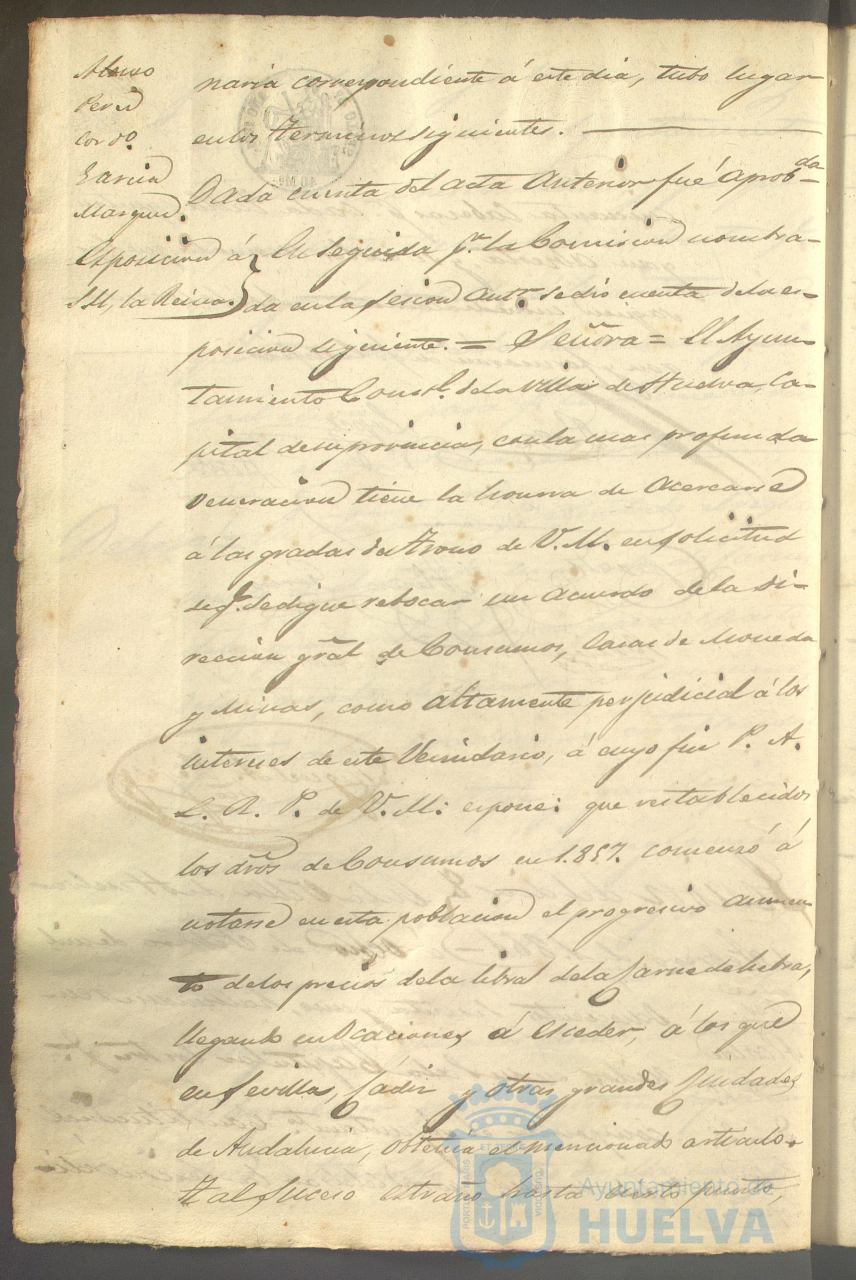 Alonso
Perez
Cordo
Garcia
Marquez.
Esposicion á
S.M. la Reina.
naria correspondiente á este dia, tubo lugar
en los terminos siguientes.
Dada cuenta del acta anterior fué aprobda
En seguida pr. la Comision nombra-
da en la sesion antr. se dió cuenta de la es-
posicion siguiente. = Señora = El Ayun-
tamiento Constl. de la Villa de Huelva, Ca-
pital de su provincia, con la mas profunda
veneracion tiene la honrra de acercarse
á las gradas del trono de V.M. en solicitud
de q. se digne rebocar un acuerdo de la Di-
rección gral de Consumos, Casas de Moneda
y Minas, como altamente perjudicial á los
intereses de este Vecindario, á cuyo fin P. A.
L. R. P. de V.M: espone: que restablecidos
los dros de Consumos en 1.857. comenzó á
notarse en esta poblacion el progresivo aumen
to de los precios de la libra de la Carne de hebra,
llegando en Ocaciones á esceder, á los que
en Sevilla, Cádiz y otras grandes Ciudades
de Andalucia, obtenia el mencionado artículo.
Tal suceso estraño hasta cierto punto,
Ayuntamiento de
HUELVA